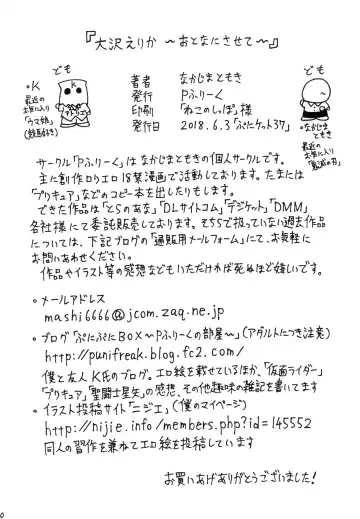 『大沢えりか ～おとなにさせて～』
ども
・K
最近の
お気に入り
「ウマ娘」
(録画勢)
アトリエ
著者 なかじまともき
発行 Pふりーく
印刷 「ねこのしっぽ」様
発行日 2018.6.3「ぷにケット37」
ども
・なかじま
ともき
最近の
お気に入り
「鬼滅の刃」
サークル「Pふりーく」はなかじまともきの個人サークルです。
主に創作ロリエロ18禁漫画で活動しております。たまには
「プリキュア」などのコピー本を出したりもします。
できた作品は「とらのあな」「DLサイトコム」「デジケット」「DMM」
各社様にて委託販売しております。そちらで扱っていない過去作品
については、下記ブログの「通販用メールフォーム」にて、お気軽に
お問いあわせください。
作品やイラスト等の感想などもいただければ死ぬほど嬉しいです。
・メールアドレス
mashi6666@jcom.zaq.ne.jp
・ブログ「ぷにぷにBOX～Pふりーくの部屋～」(アダルトにつき注意)
http://punifreak.blog.fc2.com/
僕と友人K氏のブログ。エロ絵を載せているほか、「仮面ライダー」
「プリキュア」「聖闘士星矢」の感想、その他趣味の雑記を書いてます
・イラスト投稿サイト「ニジエ」(僕のマイページ)
http://nijie.info/members.php?id=145552
同人の習作を兼ねてエロ絵を投稿しています
お買いあげありがとうございました!